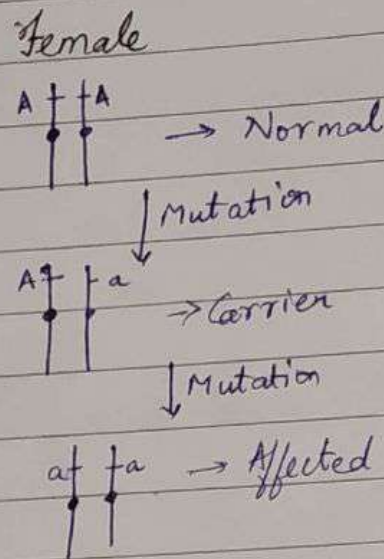 Female
A A → Normal
↓ Mutation
A a → Carrier
↓ Mutation
a a → Affected